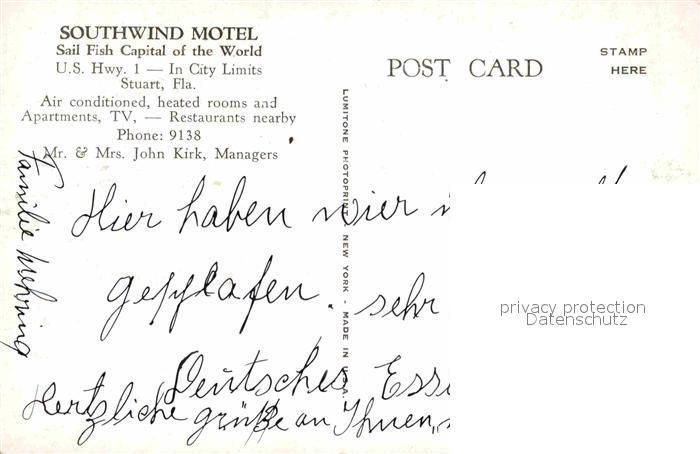 SOUTHWIND MOTEL
Sail Fish Capital of the World
U.S. Hwy. 1 — In City Limits
Stuart, Fla.
Air conditioned, heated rooms and
Apartments, TV, — Restaurants nearby
Phone: 9138
Mr. & Mrs. John Kirk, Managers
POST CARD
STAMP
HERE
LUMITONE PHOTOPRINT, NEW YORK - MADE IN U.S.A.
Hier haben wier
geschlafen. sehr
Deutsches
Hertzliche grüße an Ihnen,
Familie
privacy protection
Datenschutz